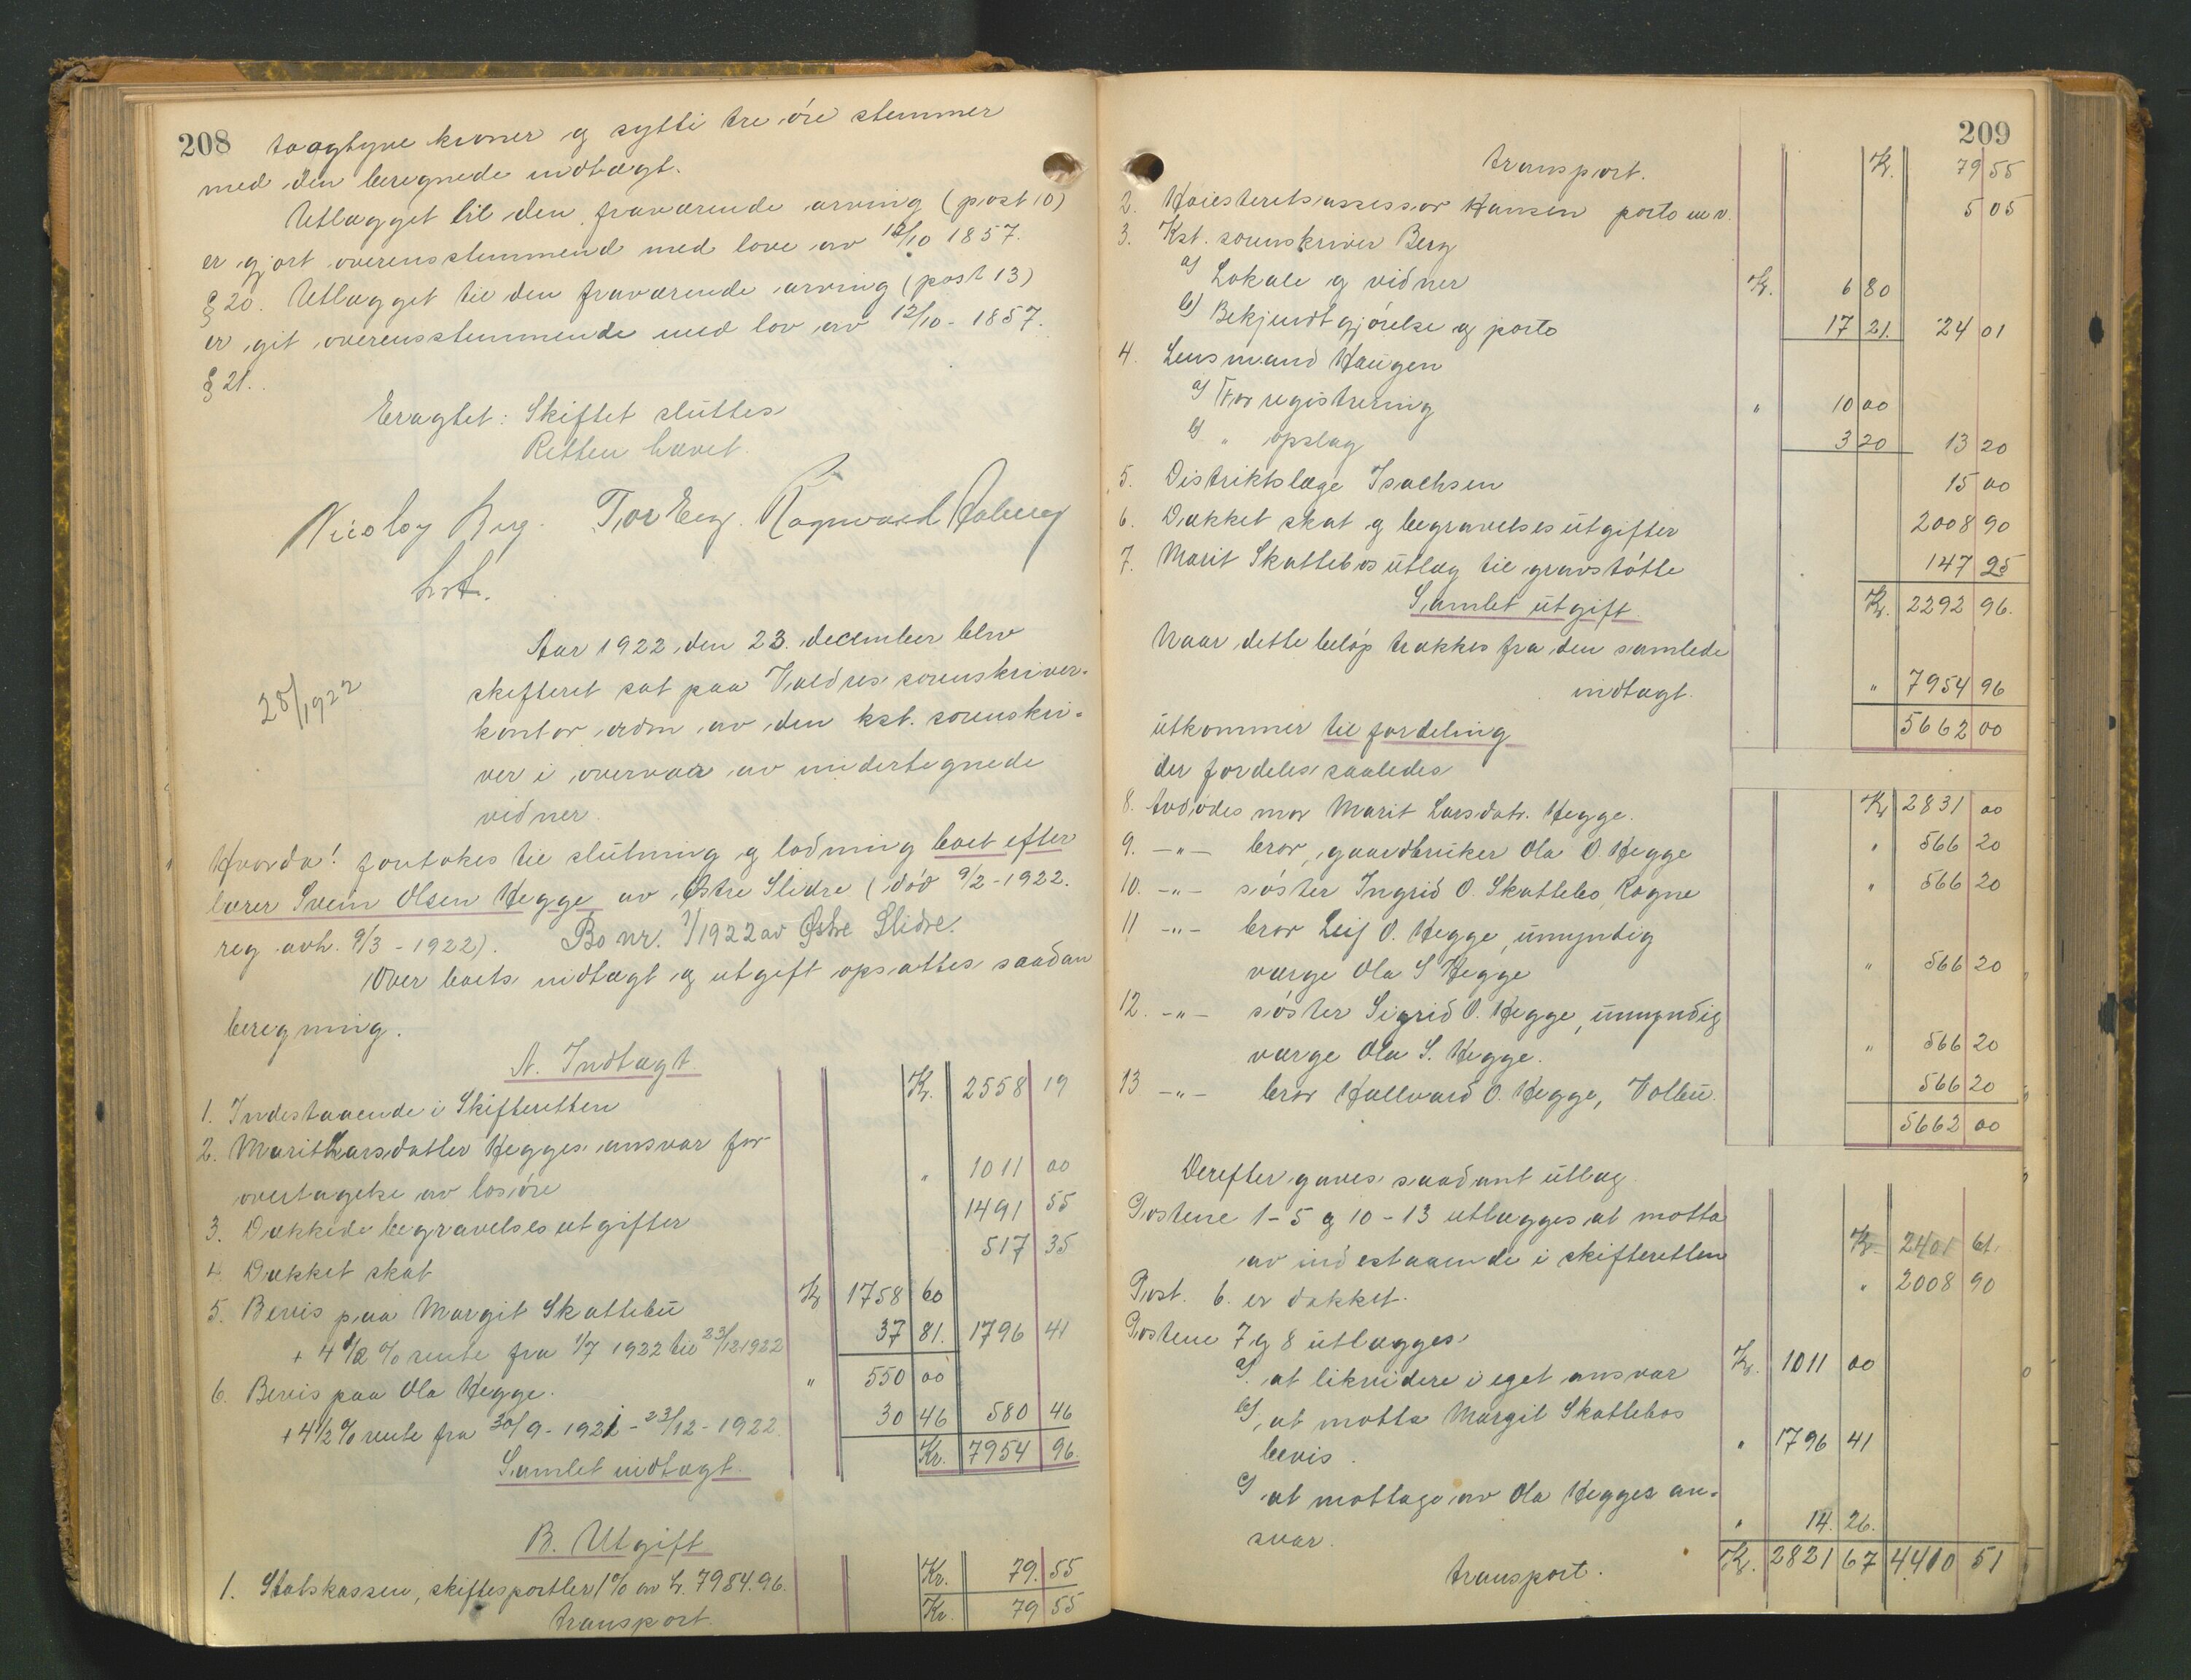 208
toogtyve kroner og sytti tre øre stemmer
med den beregnede indtægt.
Utlægget til den fraværende arving (post 10)
er gjort overensstemmend med love av 12/10 1857.
§ 20. Utlægget til den fraværende arving (post 13)
er git overensstemmende med lov av 12/10 - 1857.
§ 21.
Eragtet: Skiftet sluttes
Retten hævet.
Nicolay Berg. Tor Eeg. Ragnvald
kst.
28/1922
Aar 1922 den 23. december blev
skifteret sat paa Valdres sorenskriver-
kontor adm av den kst. sorenskri-
ver i overvær av undertegnede
vidner.
Hvorda! foretokes til slutning og lodning boet efter
lærer Svein Olsen Hegge av Østre Slidre (død 9/2 - 1922.
reg. avh. 9/3 - 1922). Bo nr. 1/1922 av Østre Slidre.
Over boets indtægt og utgift opsattes saadan
beregning.
A. Indtægt
1. Indestaaende i Skifteretten Kr. 2558 19
2. Marit Larsdatter Hegges ansvar for
overtagelse av løsøre " 1011 00
3. Dækkede begravelsesutgifter 1491 55
4. Dækket skat 517 35
5. Bevis paa Margit Skattebu Kr 1758 60
+ 4 1/2 % rente fra 1/7 1922 til 23/12 1922 37 81. 1796 41
6. Bevis paa Ola Hegge. " 550 00
+ 4 1/2 % rente fra 30/9 - 1921 - 23/12 - 1922. 30 46 580 46
Samlet indtægt. Kr. 7954 96.
B. Utgift
1. Statskassen, skiftesportler 1% av kr. 7954.96. Kr. 79. 55
transport. Kr. 79 55
209
transport. Kr. 79 55
2. Høiesteretsassessor Hansen porto m.v. 5 05
3. Kst. sorenskriver Berg
a) Lokale og vidner Kr. 6 80
b) Bekjendtgjørelse og porto 17 21. 24 01
4. Lensmand Haugen
a) For registrering " 10 00
b) " opslag 3 20 13 20
5. Distriktslæge Isachsen 15 00
6. Dækket skat og begravelsesutgifter 2008 90
7. Marit Skattebos utlæg til gravstøtte 147 25
Samlet utgift. Kr. 2292 96.
Naar dette beløp trækkes fra den samlede
indtægt. " 7954 96
utkommer til fordeling 5662 00
der fordeles saaledes
8. avdødes mor Marit Larsdatr. Hegge. Kr 2831 00
9. -"- bror, gaardbruker Ola O. Hegge " 566 20
10. -"- søster Ingrid O. Skattebo, Rogne " 566 20
11 -"- bror Leif O. Hegge, umyndig
værge Ola S Hegge " 566 20
12. -"- søster Sigrid O. Hegge, umyndig
værge Ola S. Hegge. " 566 20
13 -"- bror Hallvard O. Hegge, Volbu. 566 20
5662 00
Derefter gaves saadant utlæg.
Postene 1 - 5 og 10 - 13 utlægges at motta
av indestaaende i skifteretten Kr. 2401 61.
Post. 6. er dækket. " 2008 90
Postene 7 og 8 utlægges.
a). at likvidere i eget ansvar Kr. 1011 00
b), at motta Margit Skattebos
bevis. " 1796 41
c) at mottage av Ola Hegges an-
svar. " 14. 26.
transport. Kr. 2821 67 4410 51